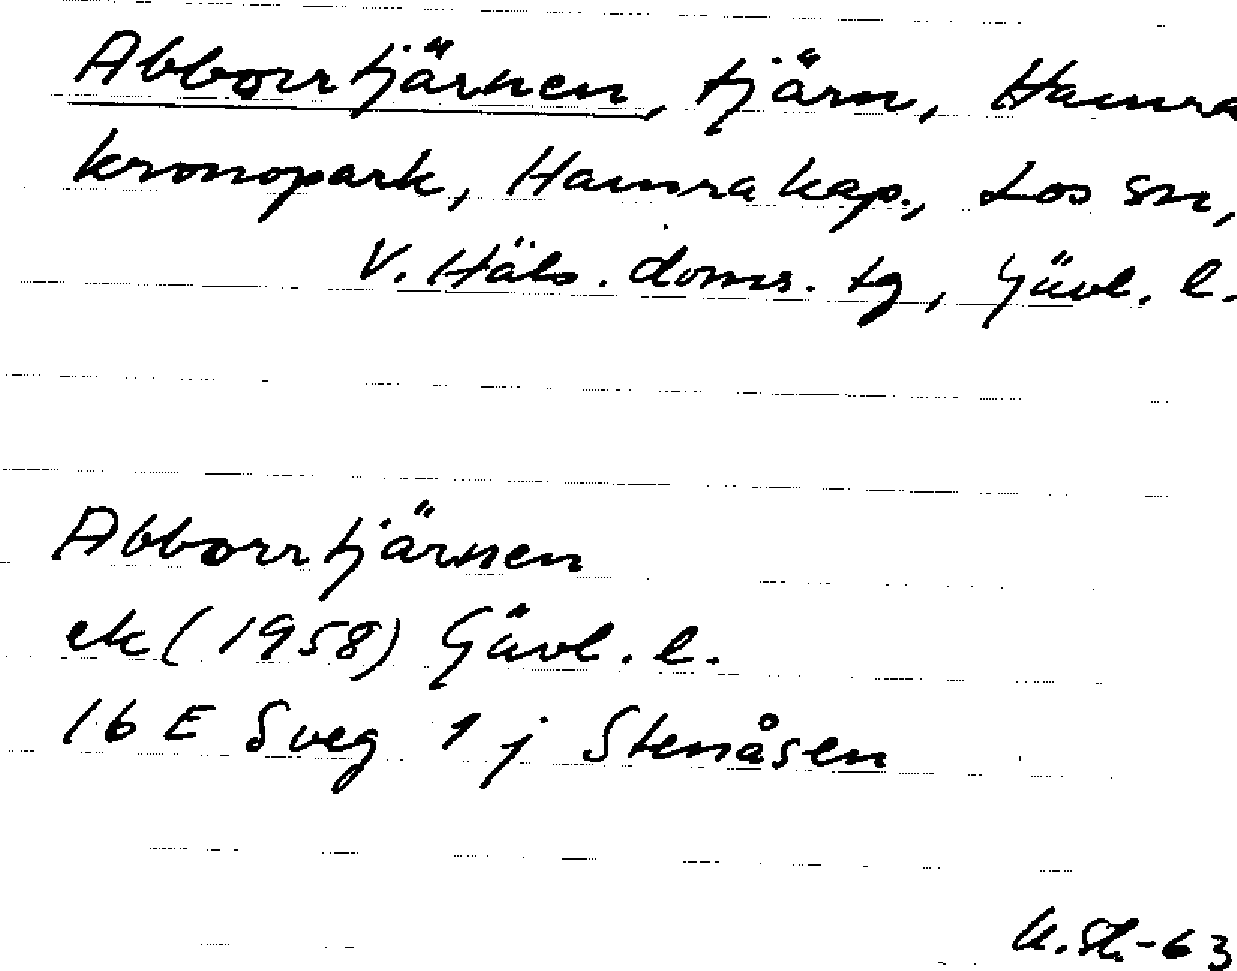 Abborrtjärnen, tjärn, Hamra
kronopark, Hamra kap., Los sn,
V. Häls. doms. tg, Gävl. l.
Abborrtjärnen
ek (1958) Gävl. l.
16 E Sveg 1 j Stenåsen
-63